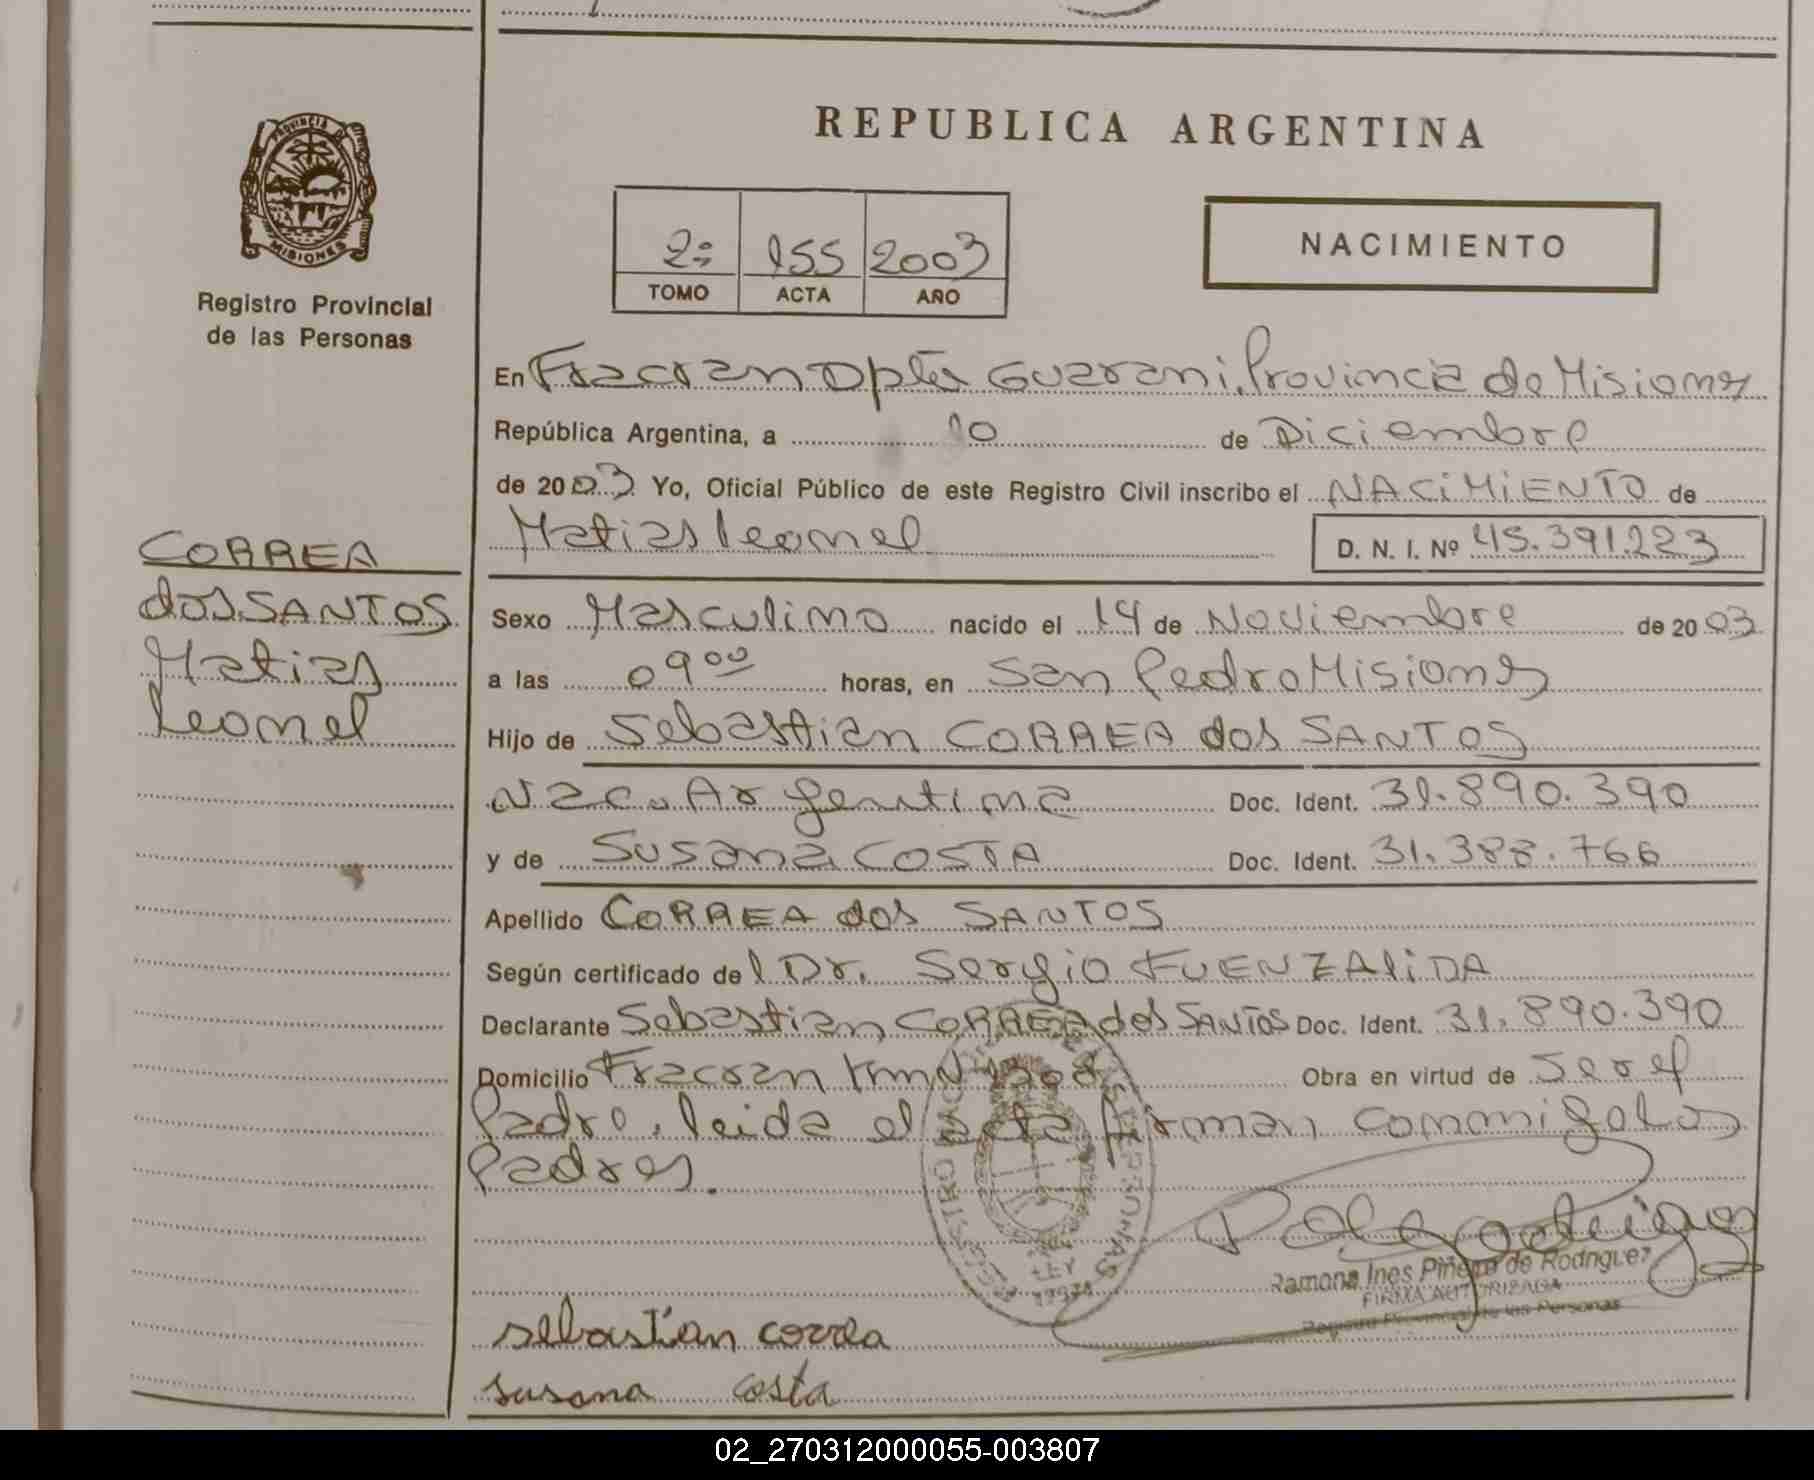 REPUBLICA ARGENTINA
PROVINCIA DE
MISIONES
Registro Provincial
de las Personas
2º 155 2003
TOMO ACTA AÑO
NACIMIENTO
En Fracran Dpto Guarani, Provincia de Misiones
República Argentina, a 10 de Diciembre
de 2003 Yo, Oficial Público de este Registro Civil inscribo el NACIMIENTO de
Matias Leonel D. N. I. Nº 45.391.223
CORREA
dos SANTOS
Matias
Leonel
Sexo Masculino nacido el 14 de Noviembre de 2003
a las 09 00 horas, en San Pedro Misiones
Hijo de Sebastian CORREA dos SANTOS
Nac. Argentina Doc. Ident. 31.890.390
y de Susana COSTA Doc. Ident. 31.388.766
Apellido CORREA dos SANTOS
Según certificado del Dr. Sergio FUENZALIDA
Declarante Sebastian CORREA dos SANTOS Doc. Ident. 31.890.390
Domicilio Fracran Km Obra en virtud de ser el
Padre, leida el acta firman conmigo los
Padres.
Ramona Ines Piñeyro de Rodriguez
FIRMA AUTORIZADA
Registro Provincial de las Personas
sebastian correa
susana costa
02_270312000055-003807